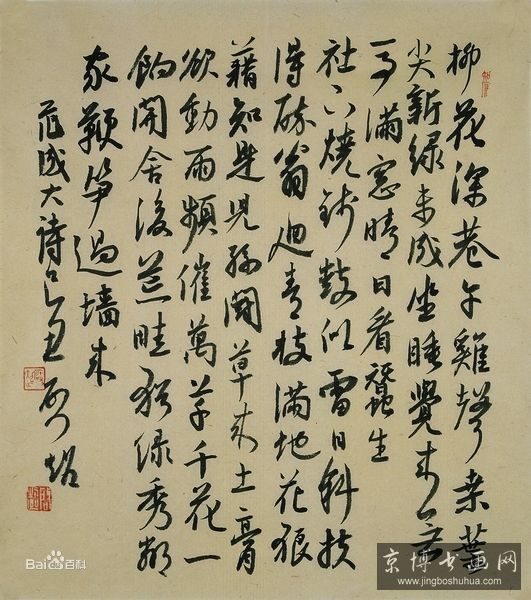 柳花深巷午雞聲桑葉
尖新綠未成坐睡覺來無
一事滿窓晴日看蠶生
社下燒錢鼓似雷日斜扶
得醉翁迴青枝滿地花狼
藉知是兒孫鬪草來土膏
欲動雨頻催萬草千花一
餉開舍後荒畦猶綠秀鄰
家鞭笋過墻來
范成大詩乙丑
Bai百科
京博书画网
www.jingboshuhua.com